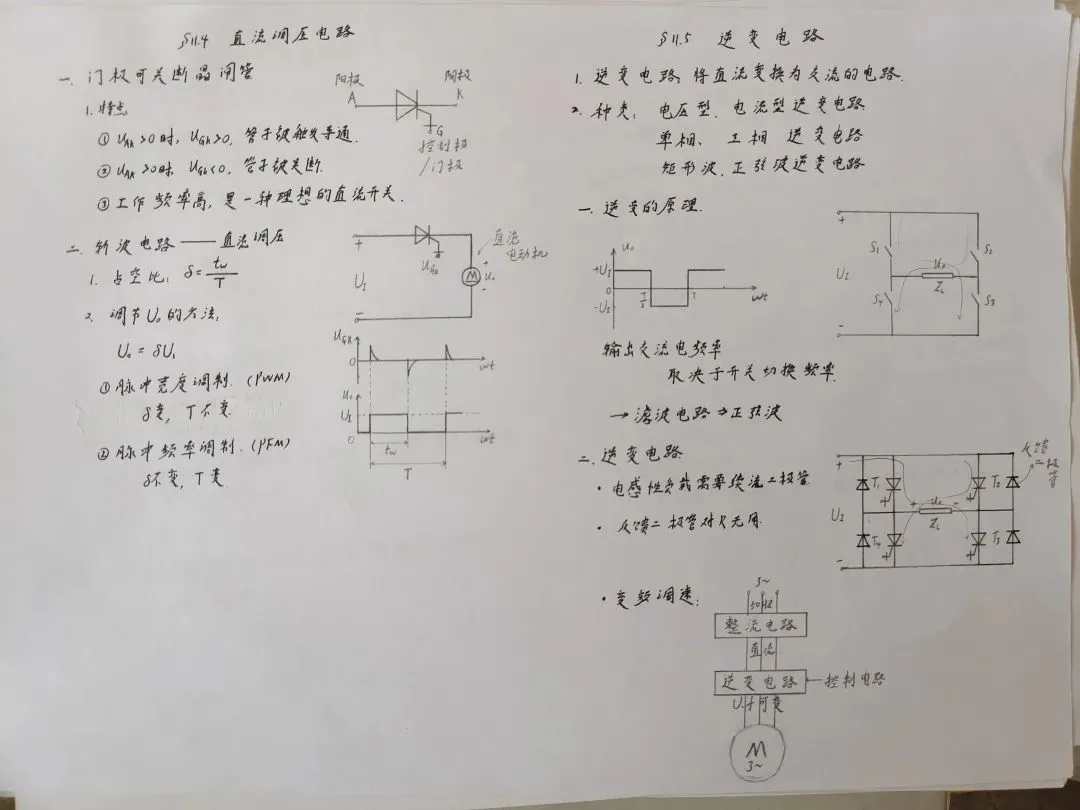 §11.4 直流调压电路
一. 门极可关断晶闸管
阳极 阴极
A K
G
控制极
/门极
1. 特点:
① UAK>0时, UGK>0, 管子被触发导通.
② UAK>0时, UGK<0, 管子被关断.
③ 工作频率高, 是一种理想的直流开关.
二. 斩波电路——直流调压
1. 占空比: δ=tw/T
2. 调节Uo的方法:
Uo = δUI
① 脉冲宽度调制. (PWM)
δ变, T不变.
② 脉冲频率调制. (PFM)
δ不变, T变.
+
UI
-
UGK
直流
电动机
M
+
Uo
-
UGK
0
ωt
Uo
UI
0
tw
ωt
T
§11.5 逆变电路
1. 逆变电路: 将直流变换为交流的电路.
2. 种类: 电压型. 电流型逆变电路
单相、三相 逆变电路
矩形波. 正弦波逆变电路
一. 逆变的原理.
uo
+UI
0
-UI
T/2
T
ωt
+
S1
S2
UI
uo
ZL
S4
S3
-
输出交流电频率
取决于开关切换频率.
→滤波电路⇒正弦波
二. 逆变电路
· 电感性负载需要续流二极管
· 反馈二极管对R无用.
+
T1
T2
反馈
二极管
UI
+ uo -
ZL
T4
T3
-
· 变频调速:
3~
50HZ
整流电路
直流
逆变电路 ← 控制电路
U.f可变
M
3~